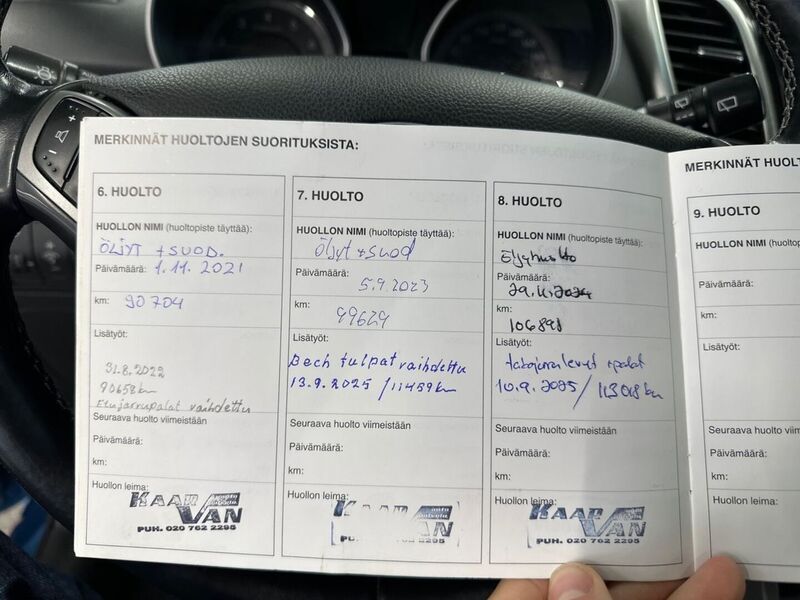 MERKINNÄT HUOLTOJEN SUORITUKSISTA:
6. HUOLTO
HUOLLON NIMI (huoltopiste täyttää):
ÖLJYT + SUOD.
Päivämäärä: 1.11. 2021
km: 90 704
Lisätyöt:
31.8.2022
90658km
Etujarrupalat vaihdettu
Seuraava huolto viimeistään
Päivämäärä:
km:
Huollon leima:
KAAR VAN
PUH. 020 762 2295
7. HUOLTO
HUOLLON NIMI (huoltopiste täyttää):
Öljyt + suod
Päivämäärä:
5.9.2023
km:
99629
Lisätyöt:
tulpat vaihdettu
13.9.2025 / km
Seuraava huolto viimeistään
Päivämäärä:
km:
Huollon leima:
KAAR VAN
2295
8. HUOLTO
HUOLLON NIMI (huoltopiste täyttää):
Päivämäärä:
km:
Lisätyöt:
10.9.2025 / km
Seuraava huolto viimeistään
Päivämäärä:
km:
Huollon leima:
KAAR VAN
PUH. 020 762 2295
MERKINNÄT
9. HUOLTO
HUOLLON NIMI
Päivämäärä:
km:
Lisätyöt:
Seuraava huolto
Päivämäärä:
km:
Huollon leima: